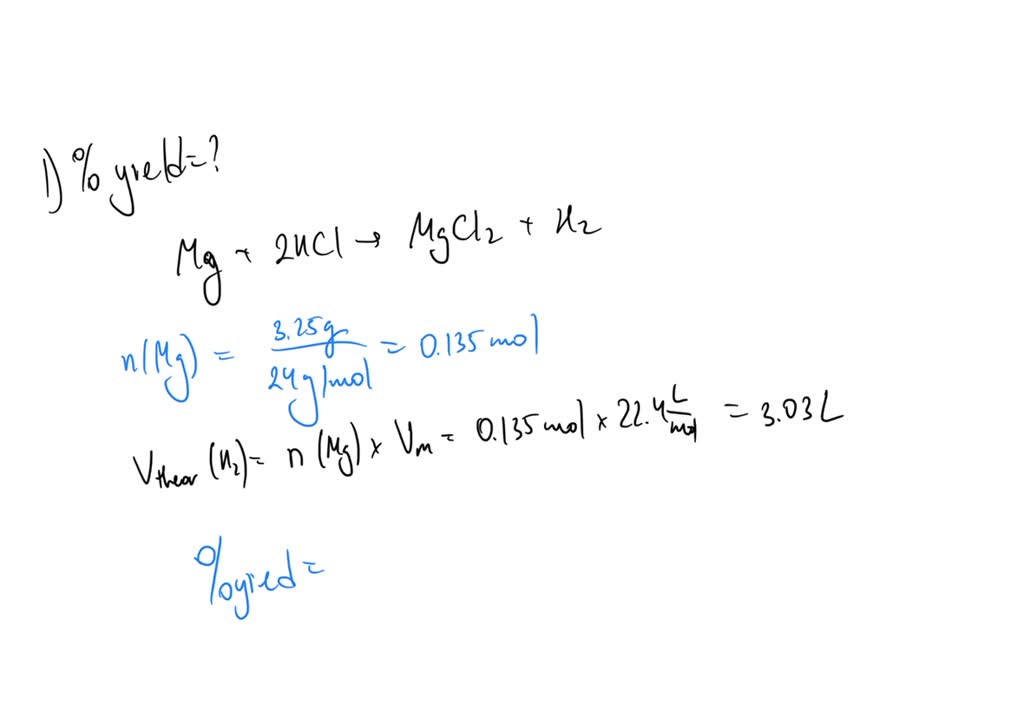 1) % yield=?
Mg + 2HCl → MgCl₂ + H₂
n(Mg) = 3.25g / 24g/mol = 0.135 mol
Vtheor (H₂)= n (Mg) × Vm = 0.135 mol × 22.4 L/mol = 3.03 L
% yied =